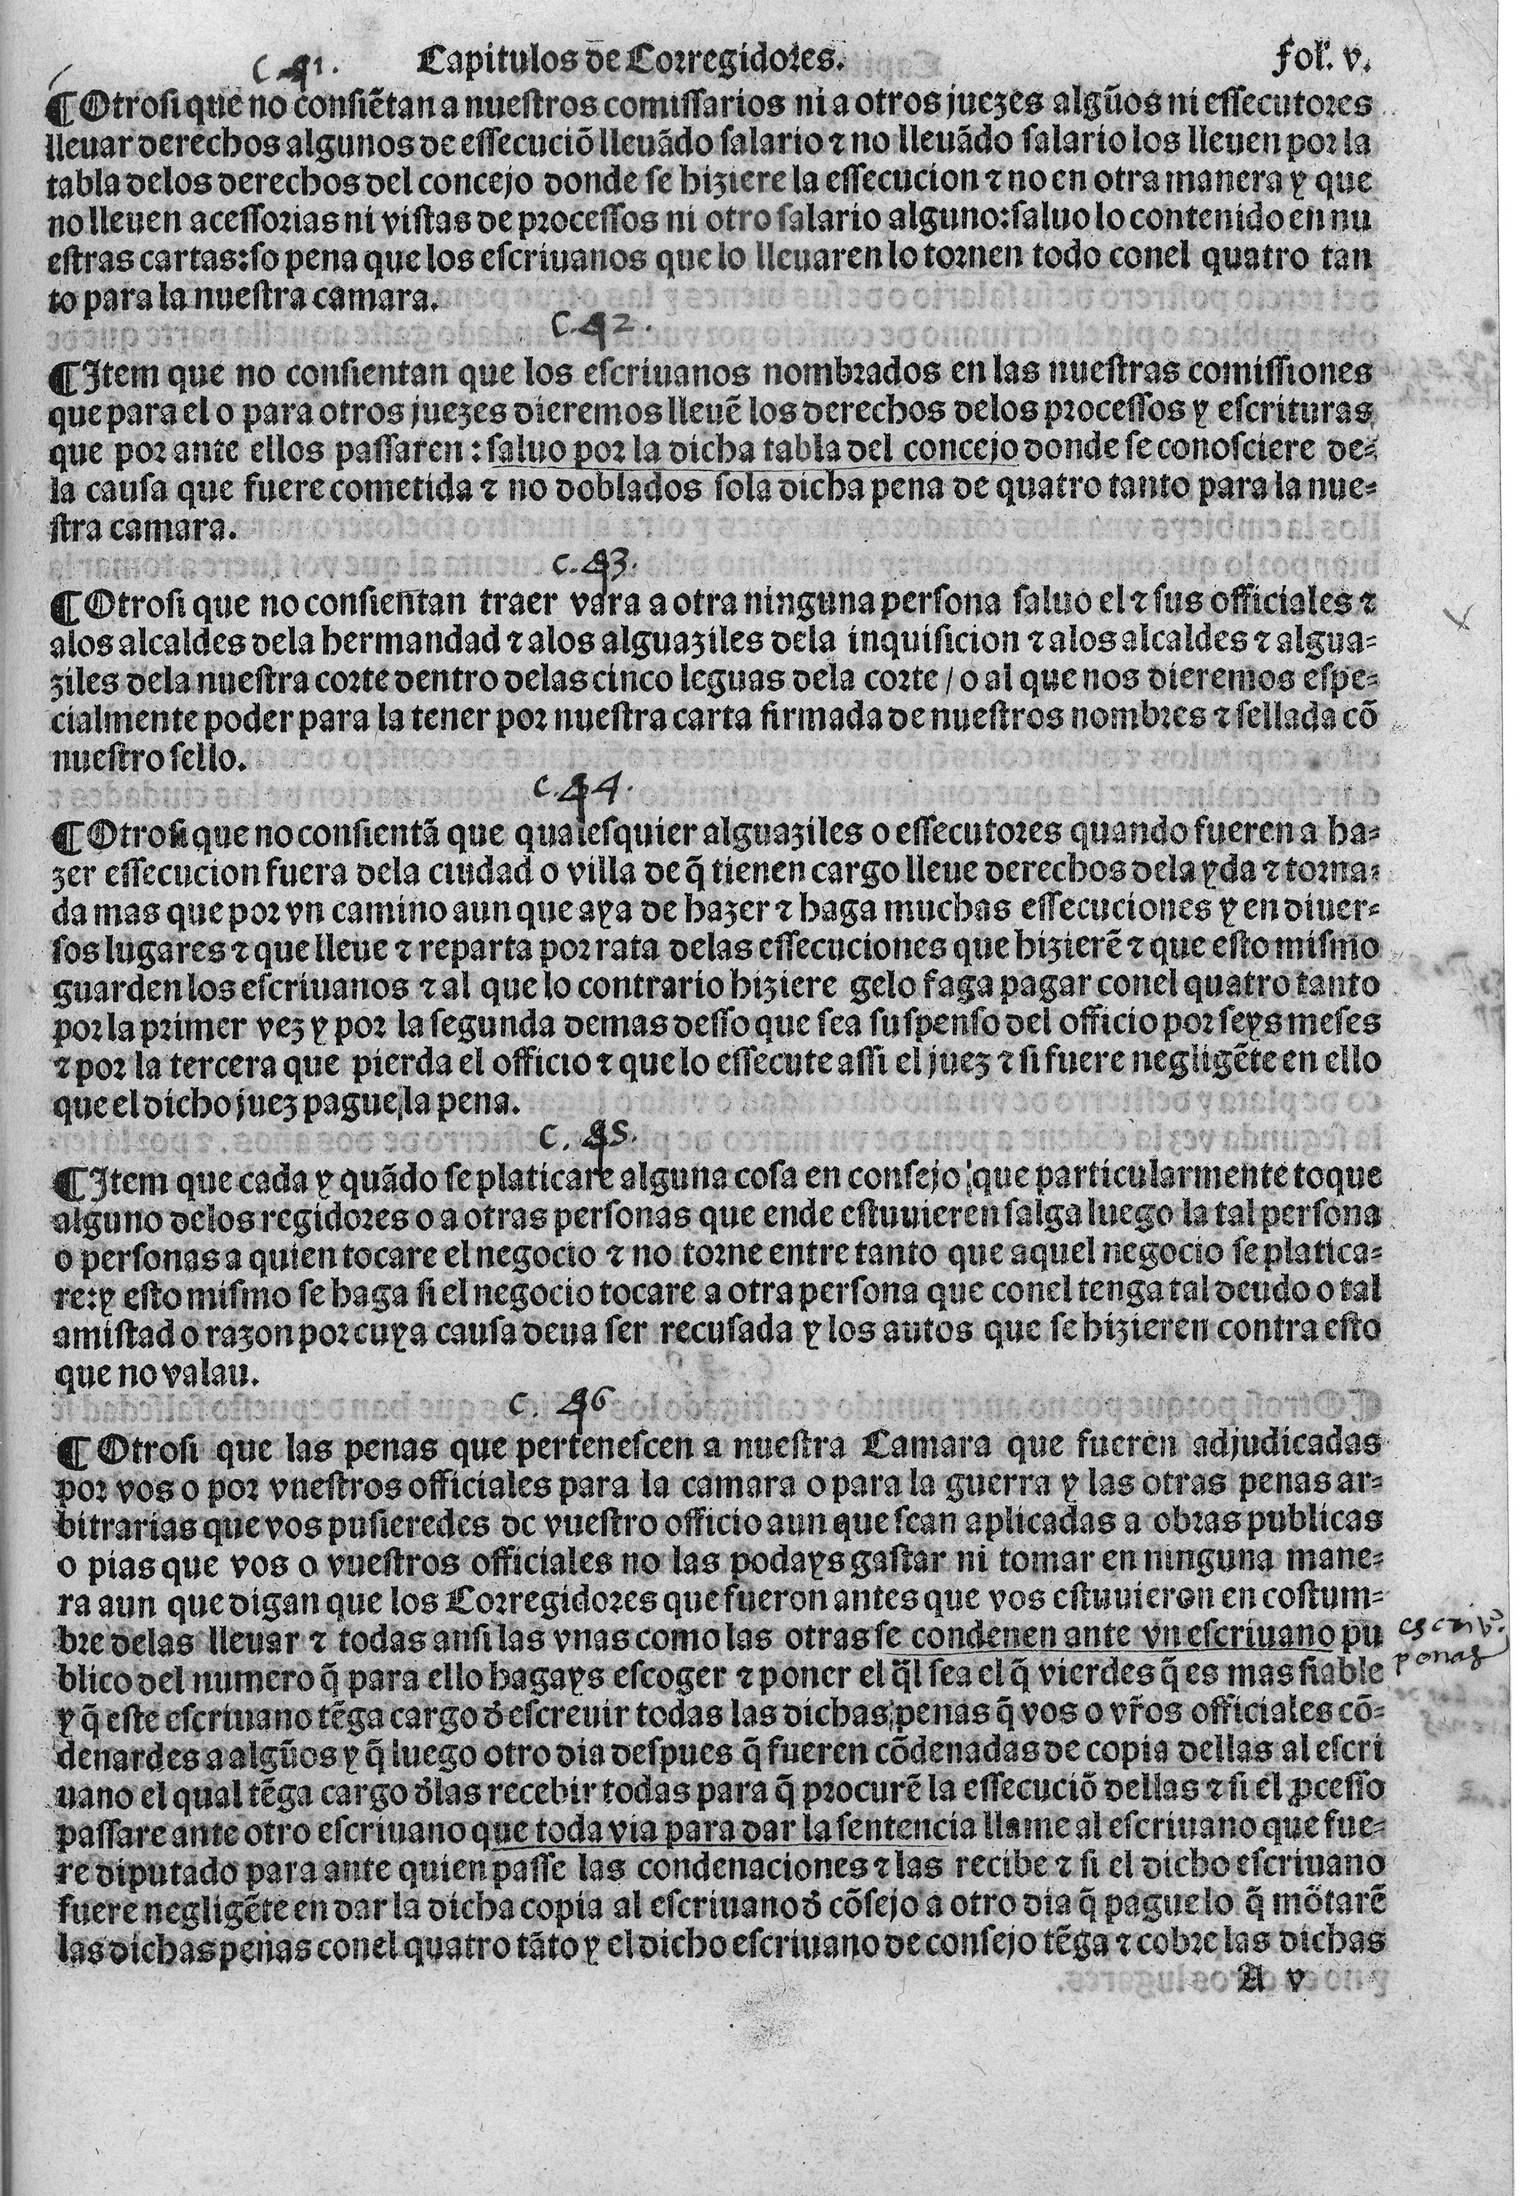 Capitulos de Corregidores. Fol. v.
C. 41.
¶Otrosi que no consiẽtan a nuestros comissarios ni a otros juezes algũos ni essecutores
lleuar derechos algunos de essecuciõ lleuãdo salario ⁊ no lleuãdo salario los lleuen por la
tabla delos derechos del concejo donde se hiziere la essecucion ⁊ no en otra manera y que
no lleuen acessorias ni vistas de processos ni otro salario alguno: saluo lo contenido en nu
estras cartas: so pena que los escriuanos que lo lleuaren lo tornen todo conel quatro tan
to para la nuestra camara.
C. 42.
¶Item que no consientan que los escriuanos nombrados en las nuestras comissiones
que para el o para otros juezes dieremos lleuẽ los derechos delos processos y escrituras
que por ante ellos passaren: saluo por la dicha tabla del concejo donde se conosciere de-
la causa que fuere cometida ⁊ no doblados sola dicha pena de quatro tanto para la nue-
stra camara.
C. 43.
¶Otrosi que no consientan traer vara a otra ninguna persona saluo el ⁊ sus officiales ⁊
alos alcaldes dela hermandad ⁊ alos alguaziles dela inquisicion ⁊ alos alcaldes ⁊ algua-
ziles dela nuestra corte dentro delas cinco leguas dela corte / o al que nos dieremos espe-
cialmente poder para la tener por nuestra carta firmada de nuestros nombres ⁊ sellada cõ
nuestro sello.
C. 44.
¶Otrosi que no consientã que qualesquier alguaziles o essecutores quando fueren a ha-
zer essecucion fuera dela ciudad o villa de q̃ tienen cargo lleue derechos dela yda ⁊ torna-
da mas que por vn camino aun que aya de hazer ⁊ haga muchas essecuciones y en diuer-
sos lugares ⁊ que lleue ⁊ reparta por rata delas essecuciones que hizierẽ ⁊ que esto mismo
guarden los escriuanos ⁊ al que lo contrario hiziere gelo faga pagar conel quatro tanto
por la primer vez y por la segunda demas desso que sea suspenso del officio por seys meses
⁊ por la tercera que pierda el officio ⁊ que lo essecute assi el juez ⁊ si fuere negligẽte en ello
que el dicho juez pague la pena.
C. 45.
¶Item que cada y quãdo se platicare alguna cosa en consejo que particularmente toque
alguno delos regidores o a otras personas que ende estuuieren salga luego la tal persona
o personas a quien tocare el negocio ⁊ no torne entre tanto que aquel negocio se platica-
re: y esto mismo se haga si el negocio tocare a otra persona que conel tenga tal deudo o tal
amistad o razon por cuya causa deua ser recusada y los autos que se hizieren contra esto
que no valau.
C. 46
¶Otrosi que las penas que pertenescen a nuestra Camara que fueren adjudicadas
por vos o por vuestros officiales para la camara o para la guerra y las otras penas ar-
bitrarias que vos pusieredes de vuestro officio aun que sean aplicadas a obras publicas
o pias que vos o vuestros officiales no las podays gastar ni tomar en ninguna mane-
ra aun que digan que los Corregidores que fueron antes que vos estuuieron en costum-
bre delas lleuar ⁊ todas ansi las vnas como las otras se condenen ante vn escriuano pu
escriv.º
penas
blico del numero q̃ para ello hagays escoger ⁊ poner el q̃l sea el q̃ vierdes q̃ es mas fiable
y q̃ este escriuano tẽga cargo d̃ escreuir todas las dichas penas q̃ vos o vr̃os officiales cõ-
denardes a algũos y q̃ luego otro dia despues q̃ fueren cõdenadas de copia dellas al escri
uano el qual tẽga cargo d̃las recebir todas para q̃ procurẽ la essecuciõ dellas ⁊ si el ꝓcesso
passare ante otro escriuano que toda via para dar la sentencia llame al escriuano que fue-
re diputado para ante quien passe las condenaciones ⁊ las recibe ⁊ si el dicho escriuano
fuere negligẽte en dar la dicha copia al escriuano d̃ cõsejo a otro dia q̃ pague lo q̃ mõtarẽ
las dichas penas conel quatro tãto y el dicho escriuano de consejo tẽga ⁊ cobre las dichas
A v